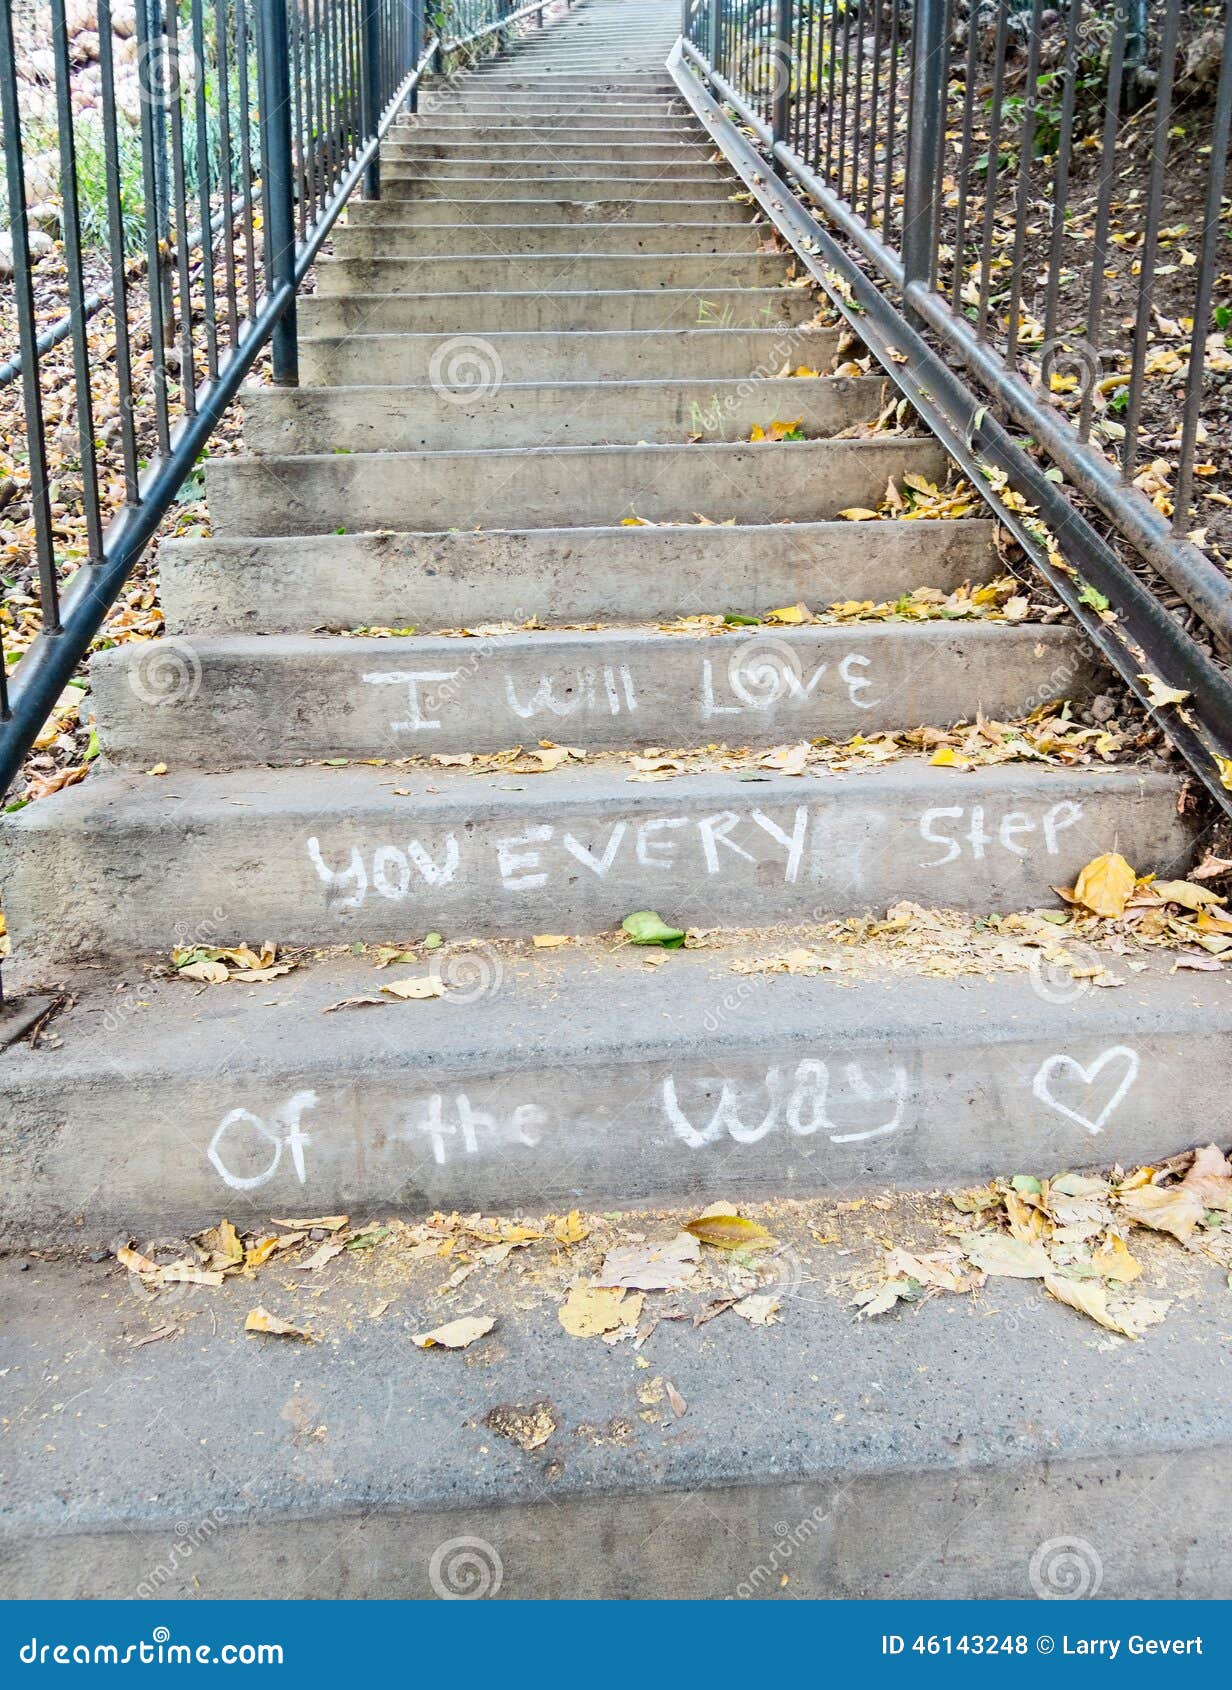 I will LOVE
you EVERY step
Of the way ♡
dreamstime.com
ID 46143248 © Larry Gevert